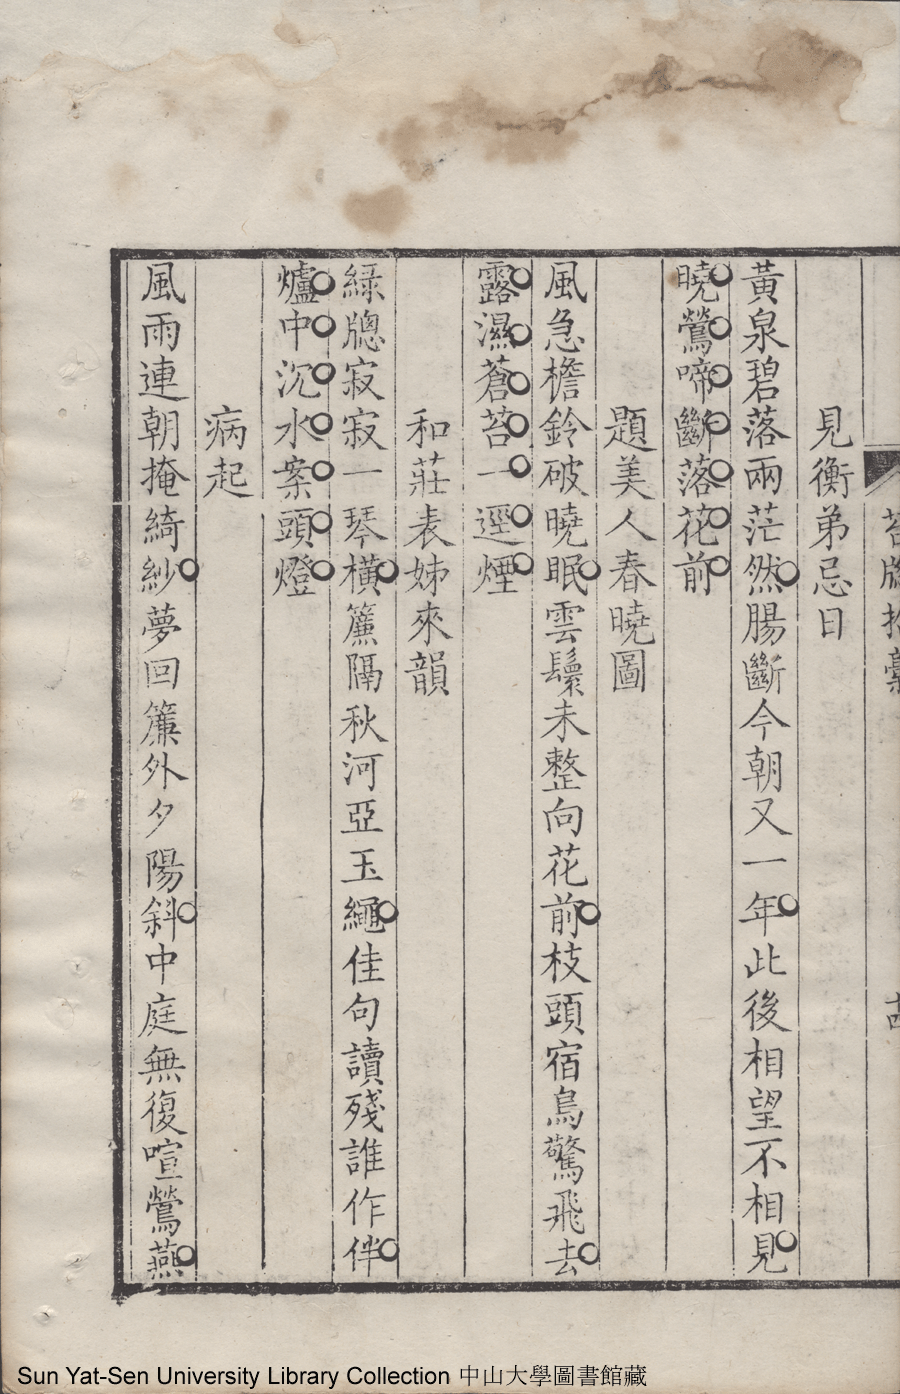 見衡弟忌日
黃泉碧落兩茫然腸斷今朝又一年此後相望不相見
曉鶯啼斷落花前
題美人春曉圖
風急檐鈴破曉眠雲鬟未整向花前枝頭宿鳥驚飛去
露濕蒼苔一逕煙
和莊表姊來韻
綠牕寂寂一琴橫簾隔秋河亞玉繩佳句讀殘誰作伴
爐中沉水案頭燈
病起
風雨連朝掩綺紗夢回簾外夕陽斜中庭無復喧鶯燕
Sun Yat-Sen University Library Collection 中山大學圖書館藏